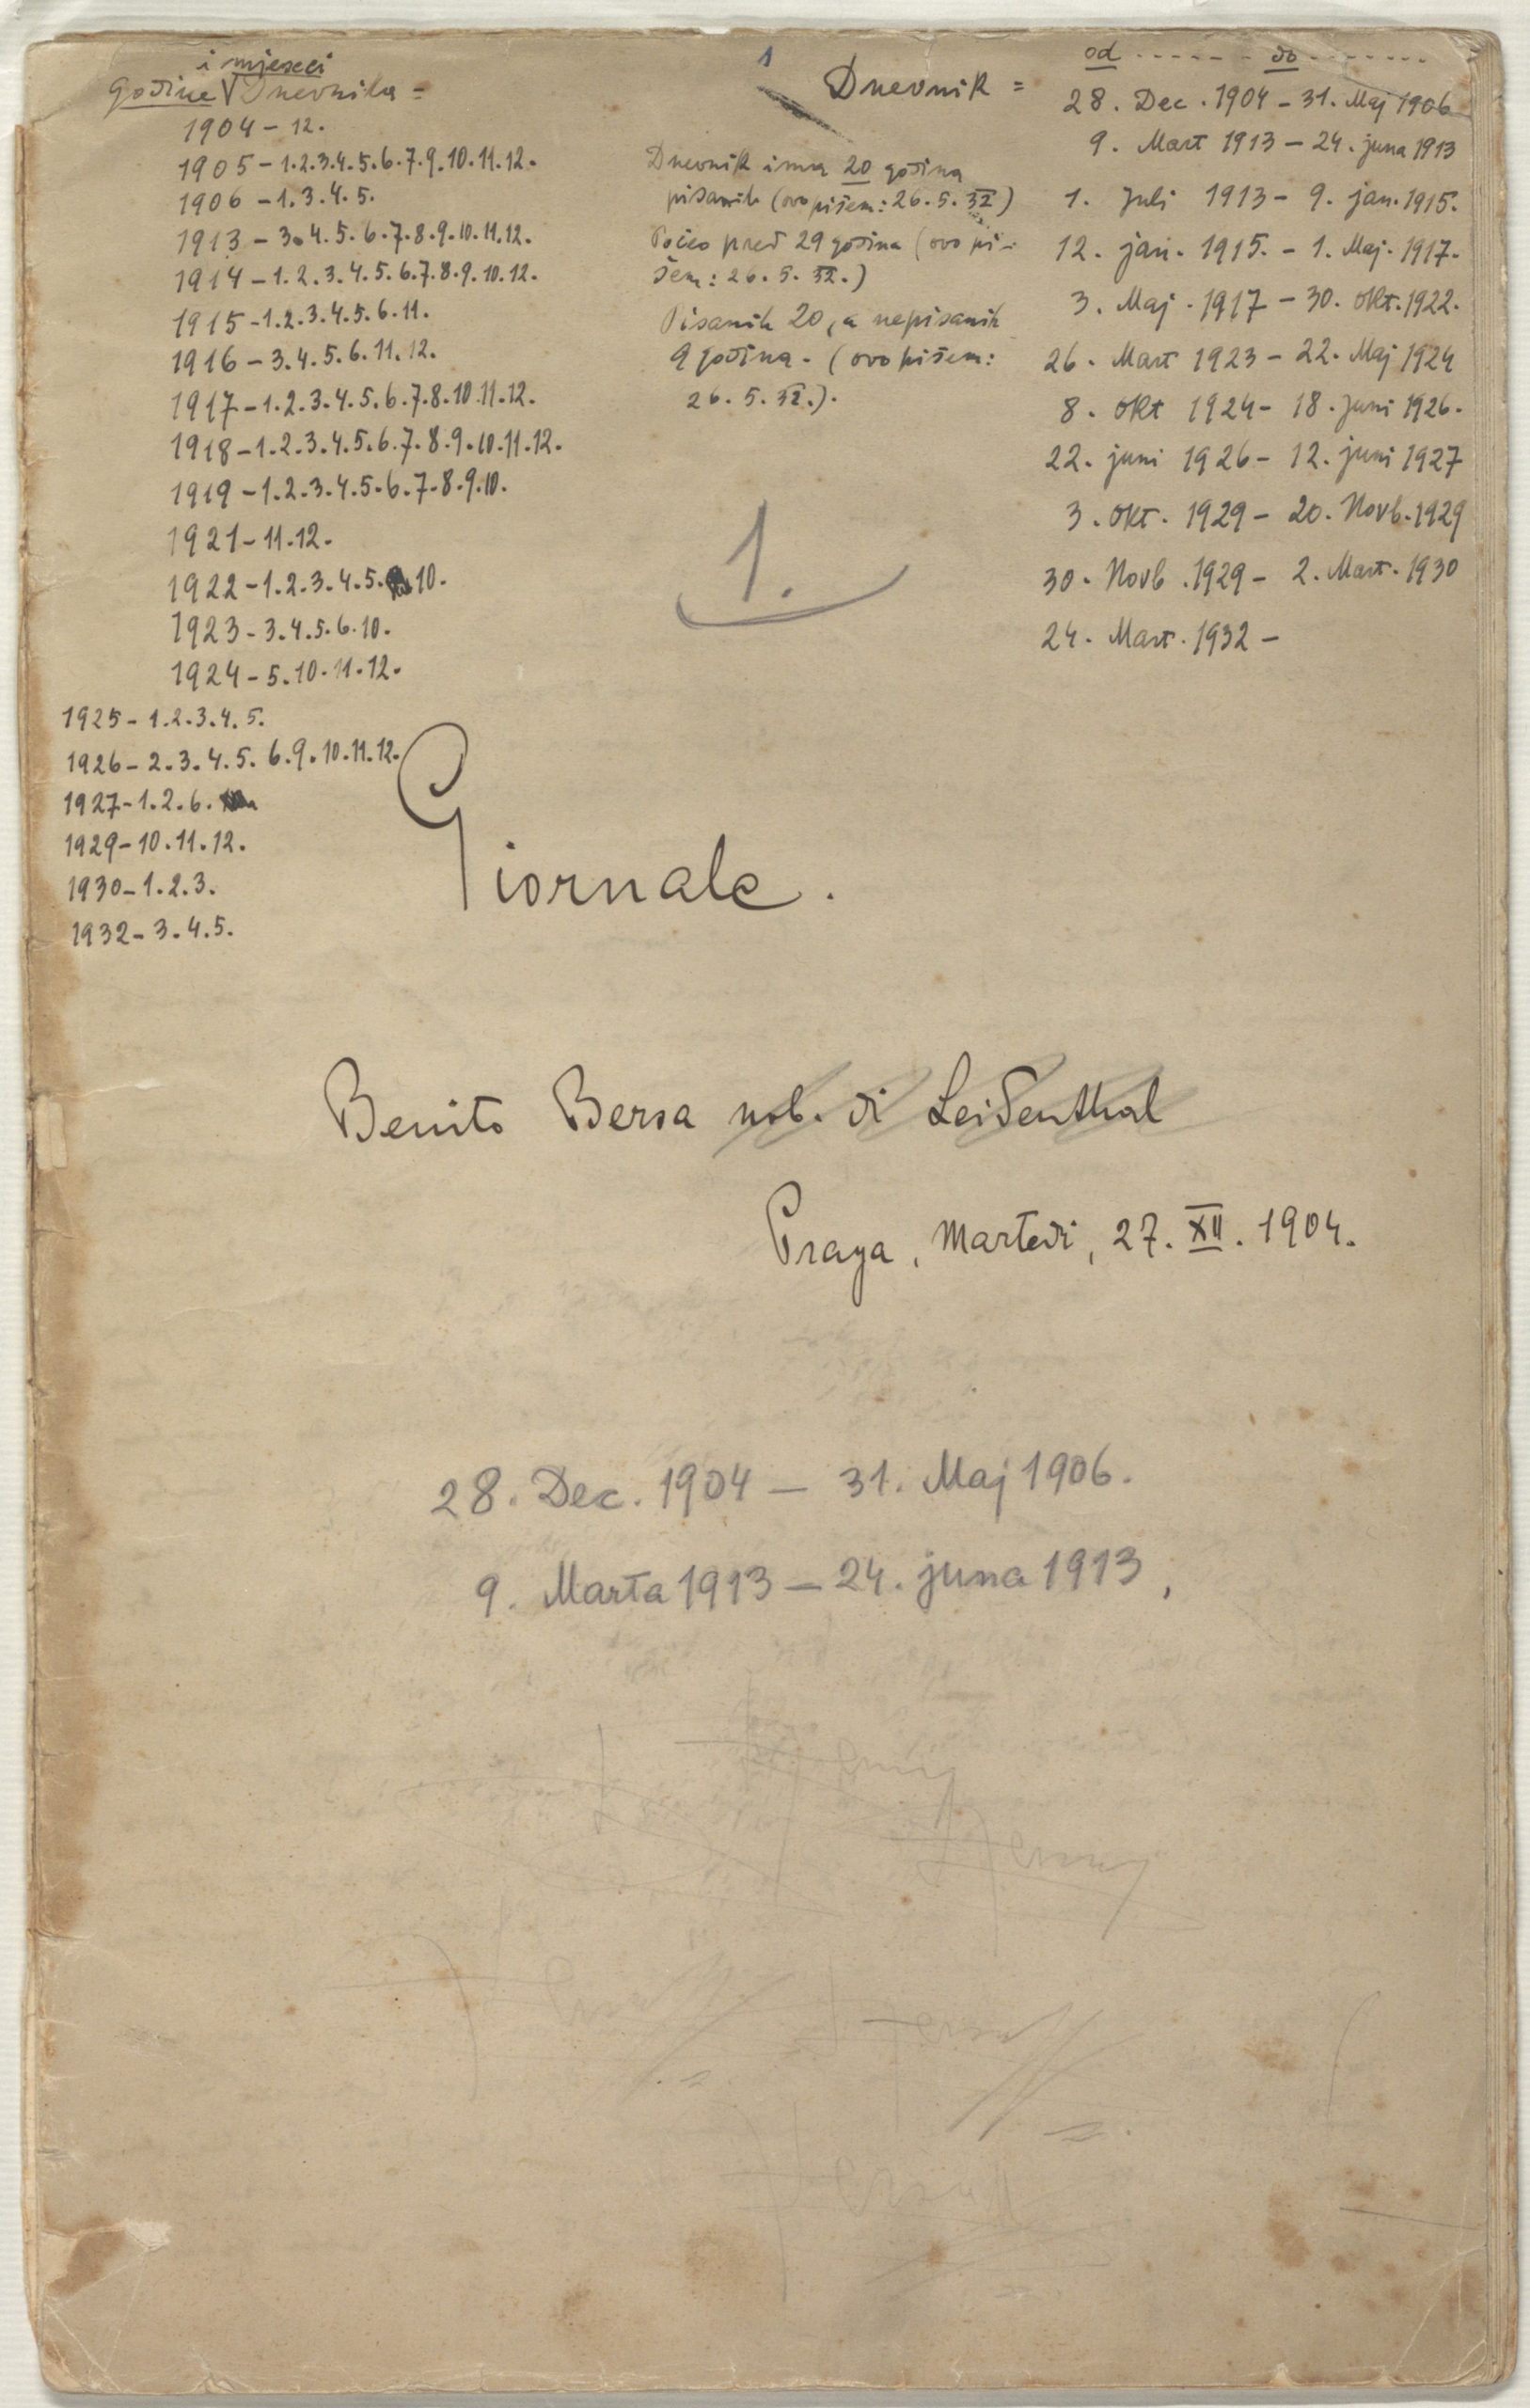 i mjeseci
Godine V Dnevnika =
1904 - 12.
1905 - 1.2.3.4.5.6.7.9.10.11.12.
1906 - 1.3.4.5.
1913 - 3.4.5.6.7.8.9.10.11.12.
1914 - 1.2.3.4.5.6.7.8.9.10.12.
1915 - 1.2.3.4.5.6.11.
1916 - 3.4.5.6.11.12.
1917 - 1.2.3.4.5.6.7.8.10.11.12.
1918 - 1.2.3.4.5.6.7.8.9.10.11.12.
1919 - 1.2.3.4.5.6.7.8.9.10.
1921 - 11.12.
1922 - 1.2.3.4.5. 10.
1923 - 3.4.5.6.10.
1924 - 5.10.11.12.
1925 - 1.2.3.4.5.
1926 - 2.3.4.5.6.9.10.11.12.
1927 - 1.2.6.
1929 - 10.11.12.
1930 - 1.2.3.
1932 - 3.4.5.
1
Dnevnik ima 20 godina
pisanih (ovo pišem: 26.5.32)
Počeo pred 29 godina (ovo pi-
šem: 26.5.32.)
Pisanih 20, a nepisanih
9 godina. (ovo pišem:
26.5.32.).
Dnevnik =
od ...... do .......
28. Dec. 1904 - 31. Maj 1906
9. Mart 1913 - 24. juna 1913
1. Juli 1913 - 9. jan. 1915.
12. jan. 1915. - 1. Maj. 1917.
3. Maj. 1917 - 30. okt. 1922.
26. Mart 1923 - 22. Maj 1924
8. okt 1924 - 18. juni 1926.
22. juni 1926 - 12. juni 1927
3. okt. 1929 - 20. Novb. 1929
30. Novb. 1929 - 2. Mart. 1930
24. Mart. 1932 -
1.
Giornale.
Benito Bersa nob. di Leidenthal
Praga, Martedi, 27. XII. 1904.
28. Dec. 1904 — 31. Maj 1906.
9. Marta 1913 — 24. juna 1913,